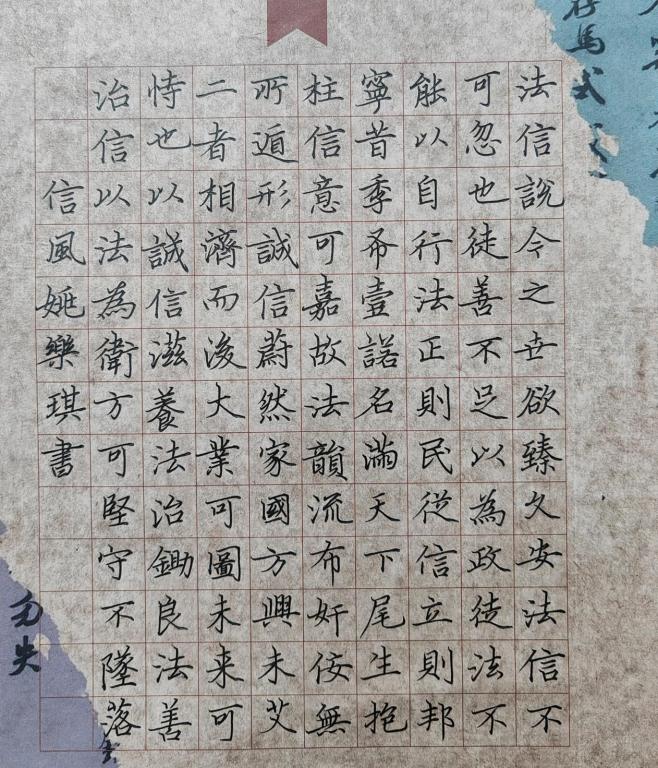 法信說今之世欲臻久安法信不
可忽也徒善不足以為政徒法不
能以自行法正則民從信立則邦
寧昔季布壹諾名滿天下尾生抱
柱信意可嘉故法韻流布奸佞無
所遁形誠信蔚然家國方興未艾
二者相濟而後大業可圖未来可
恃也以誠信滋養法治鋤良法善
治信以法為衛方可堅守不墜落
信風姚樂琪書
勿失